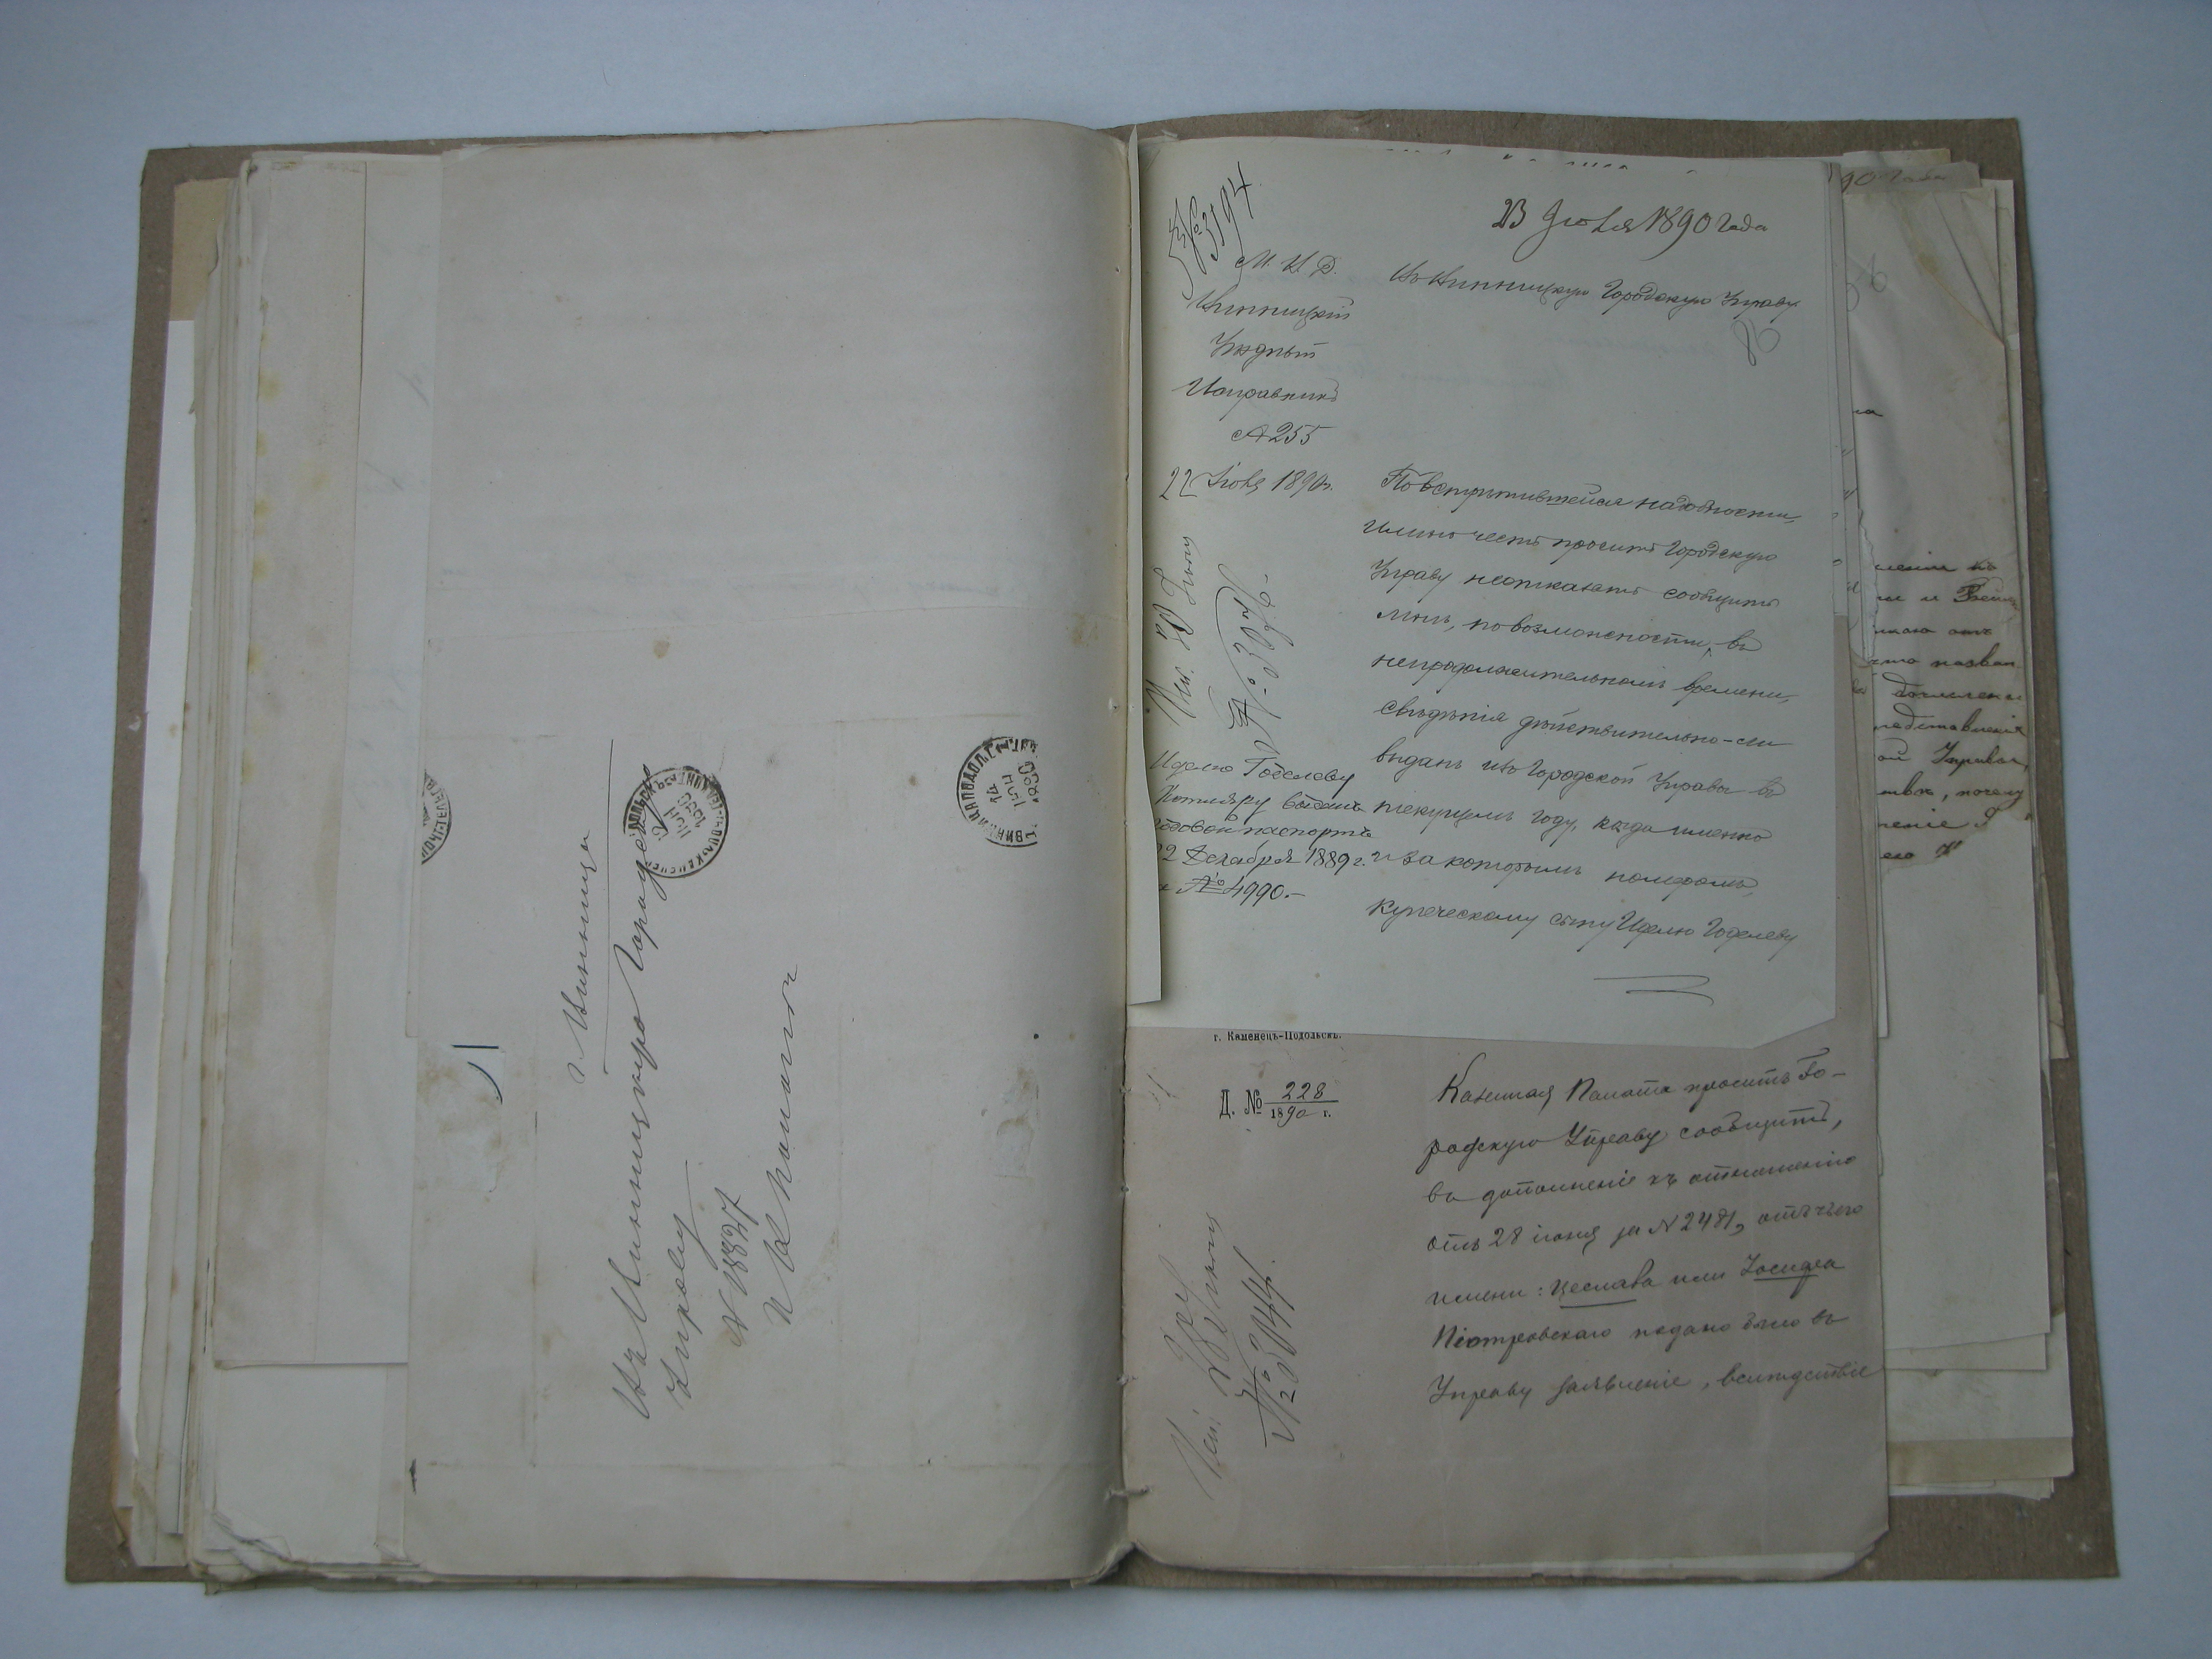 г. Винница
Въ Винницкую Городскую
Управу
№ 18847
ВИННИЦА ПОДОЛЬ
14
ІЮЛ
1890
№ 3594
23 Іюля 1890 года
М. В. Д.
Винницкій
Уѣздный
Исправникъ
255
22 Іюля 1890 г.
Въ Винницкую Городскую Управу
86
По встрѣтившейся надобности,
имѣю честь просить Городскую
Управу неотказать сообщить
мнѣ, по возможности, въ
непродолжительномъ времени,
свѣдѣнія дѣйствительно-ли
выданъ изъ Городской Управы въ
текущемъ году, когда именно
и за которымъ номеромъ,
купеческому сыну Иделю Годелеву
№ 3076
Иделю Годелеву
Котляру выданъ
годовой паспортъ
22 Декабря 1889 г.
№ 4990.-
г. Каменецъ-Подольскъ.
Д. № 228
1890 г.
Казенная Палата проситъ Го-
родскую Управу сообщить,
въ дополненіе къ отношенію
отъ 28 іюня за № 2481, отъ чьего
имени: Цеслава или Іосифа
Піотровскаго подано было въ
Управу заявленіе, вслѣдствіе
№ 3044.